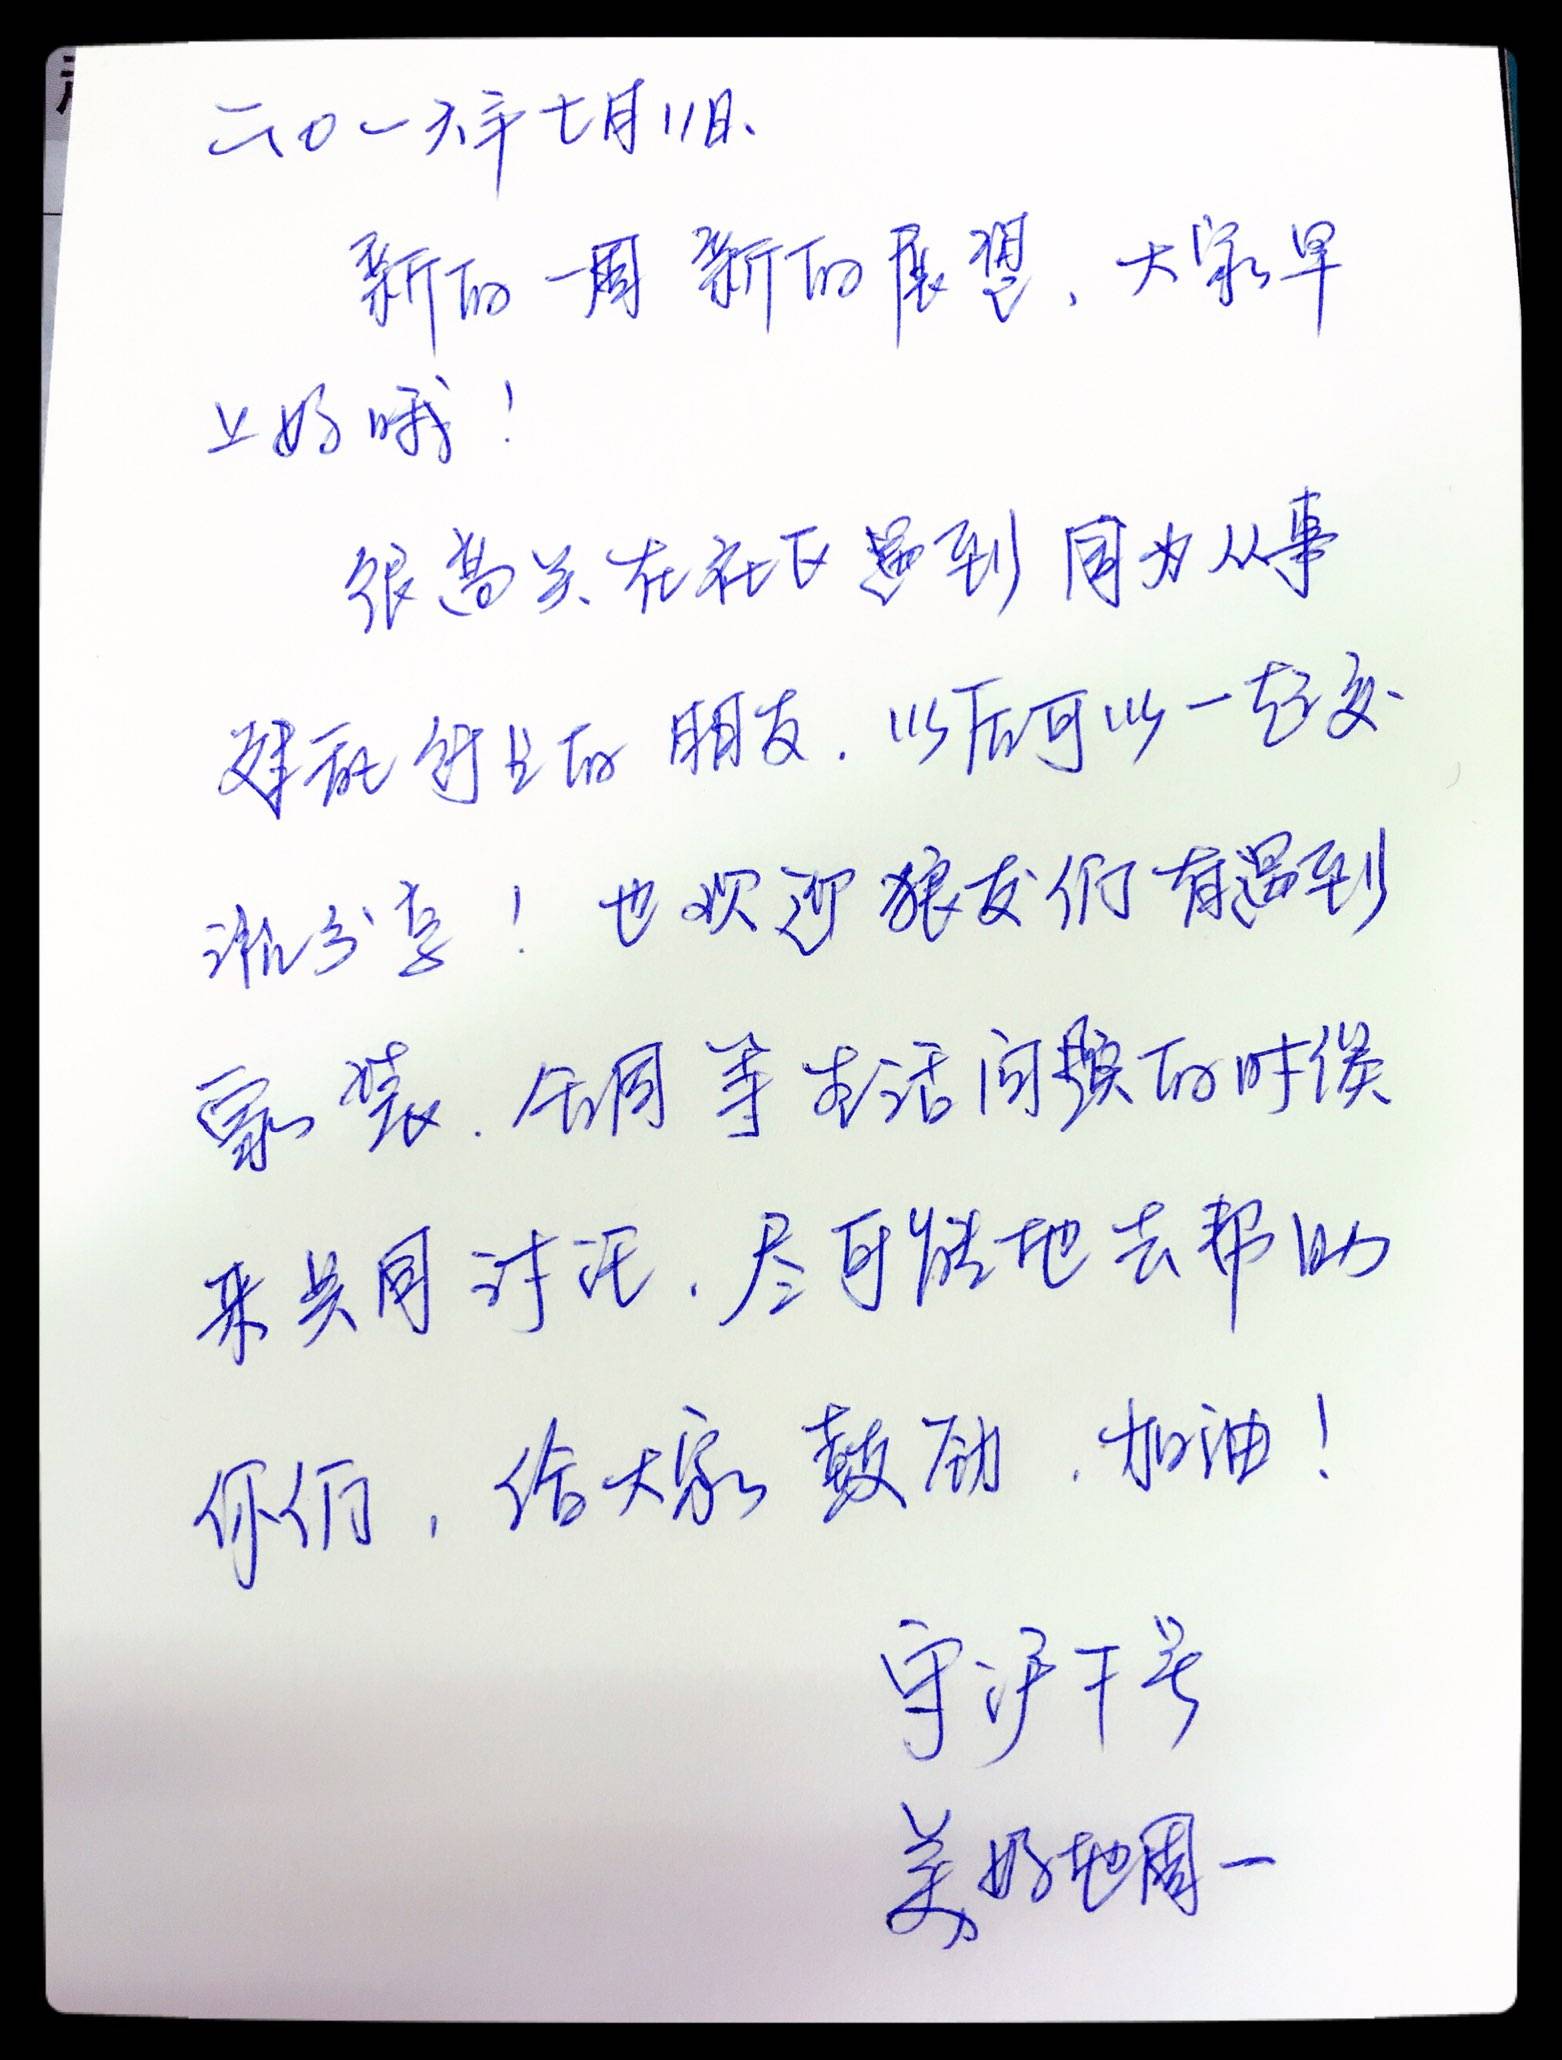 二〇一六年七月11日、
新的一周 新的展望、大家早
上好哦！
很高兴在社区遇到同为从事
建筑行业的朋友．以后可以一起交
流分享！也欢迎狼友们有遇到
家装．空调等生活问题的时候
来共同讨论．尽可能地去帮助
你们，给大家鼓励．加油！
守沪干号
美好地周一